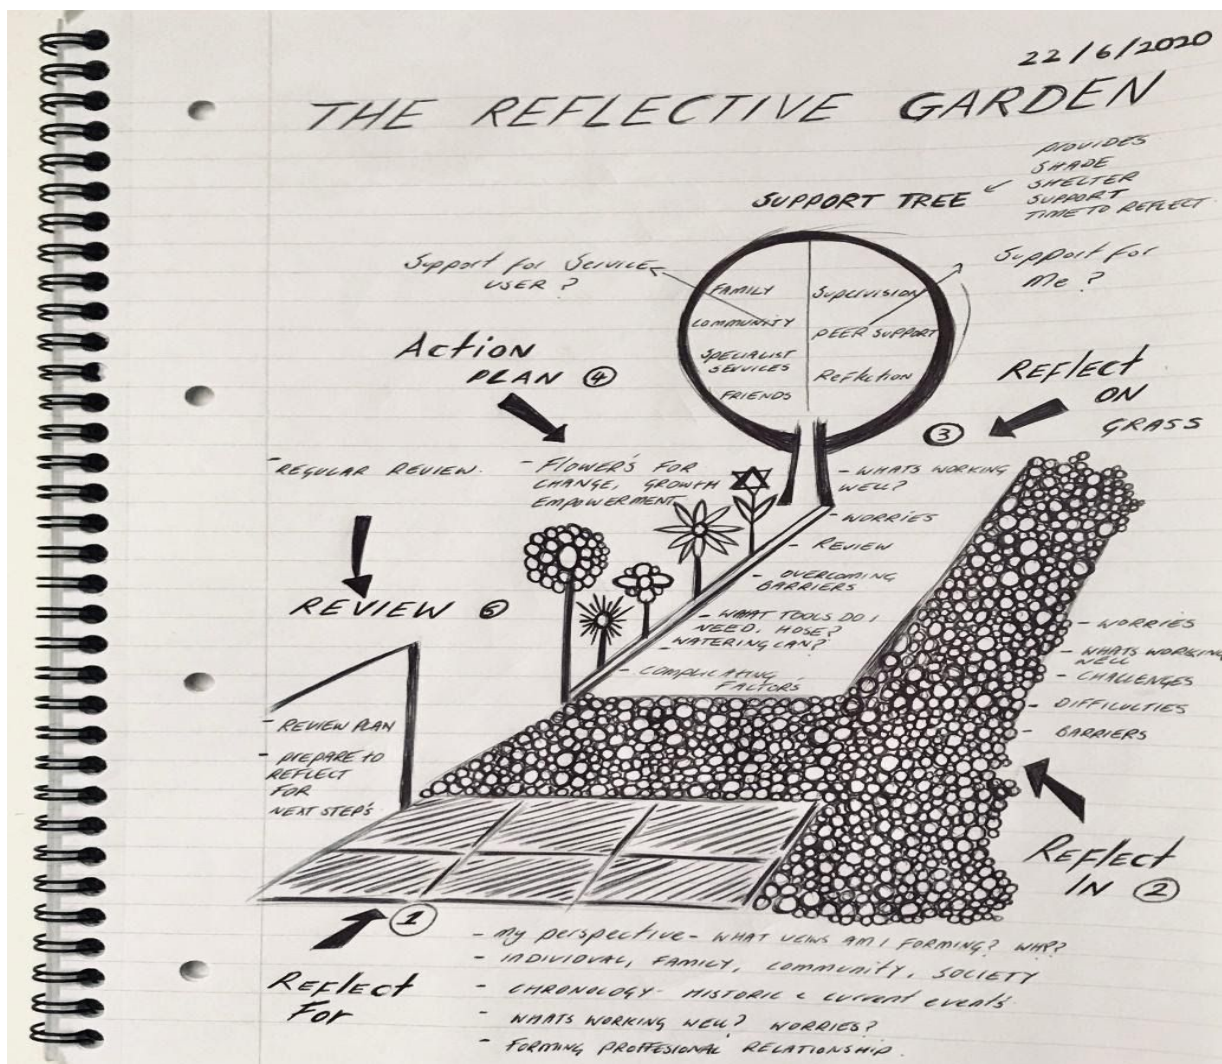 22/6/2020
THE REFLECTIVE GARDEN
PROVIDES
SHADE
SHELTER
SUPPORT
TIME TO REFLECT
SUPPORT TREE
Support for Service
USER ?
Support for
Me ?
FAMILY
COMMUNITY
SPECIALIST
SERVICES
FRIENDS
SUPERVISION
PEER SUPPORT
Reflection
Action
PLAN 4
Reflect
ON
GRASS
3
- REGULAR REVIEW.
- FLOWER'S FOR
CHANGE, GROWTH
EMPOWERMENT
- WHATS WORKING
WELL?
- WORRIES
- REVIEW
- OVERCOMING
BARRIERS
- WHAT TOOLS DO I
NEED, HOSE?
WATERING CAN?
- COMPLICATING
FACTORS
REVIEW 5
- REVIEW PLAN
- PREPARE TO
REFLECT
FOR
NEXT STEP'S
- WORRIES
- WHATS WORKING
WELL
- CHALLENGES
- DIFFICULTIES
- BARRIERS
Reflect
IN 2
1
Reflect
For
- My perspective - WHAT VEWS AM I FORMING? WHY?
- INDIVIDUAL, FAMILY, COMMUNITY, SOCIETY
- CHRONOLOGY - HISTORIC & current events
- WHATS WORKING WELL? WORRIES?
- FORMING PROFFESIONAL RELATIONSHIP.